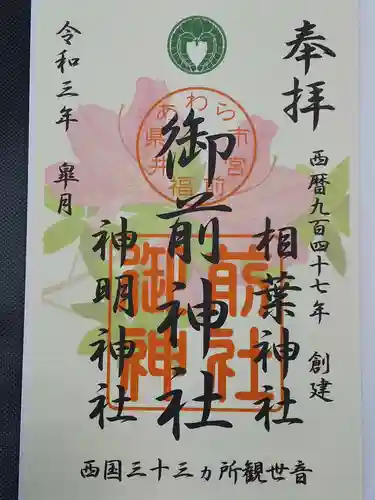 奉拝
西暦九百四十七年 創建
相葉神社
御前神社
神明神社
令和三年 皐月
あわら市宮前福井県
御前神社
西国三十三ヵ所観世音